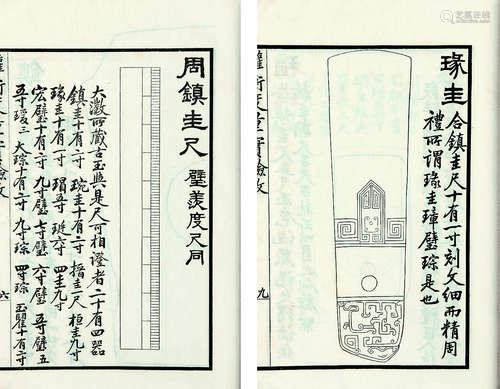 瑑圭 合鎮圭尺十有一寸刻文細而精周
禮所謂瑑圭璋璧琮是也
權衡度量實驗攷
九
周鎮圭尺 璧羨度尺同
大澂所藏古玉與是尺可相證者二十有四器
鎮圭十有二寸 琬圭十有二寸 搢圭一尺 桓圭九寸
瑑圭十有一寸 瑁五寸 珽六寸 四圭九寸
宏璧十有二寸 九寸璧 七寸璧 六寸璧 五寸璧五
五寸瑗三 大琮十有二寸 九寸琮 四寸琮 玉瞿十有寸
權衡度量實驗攷
六